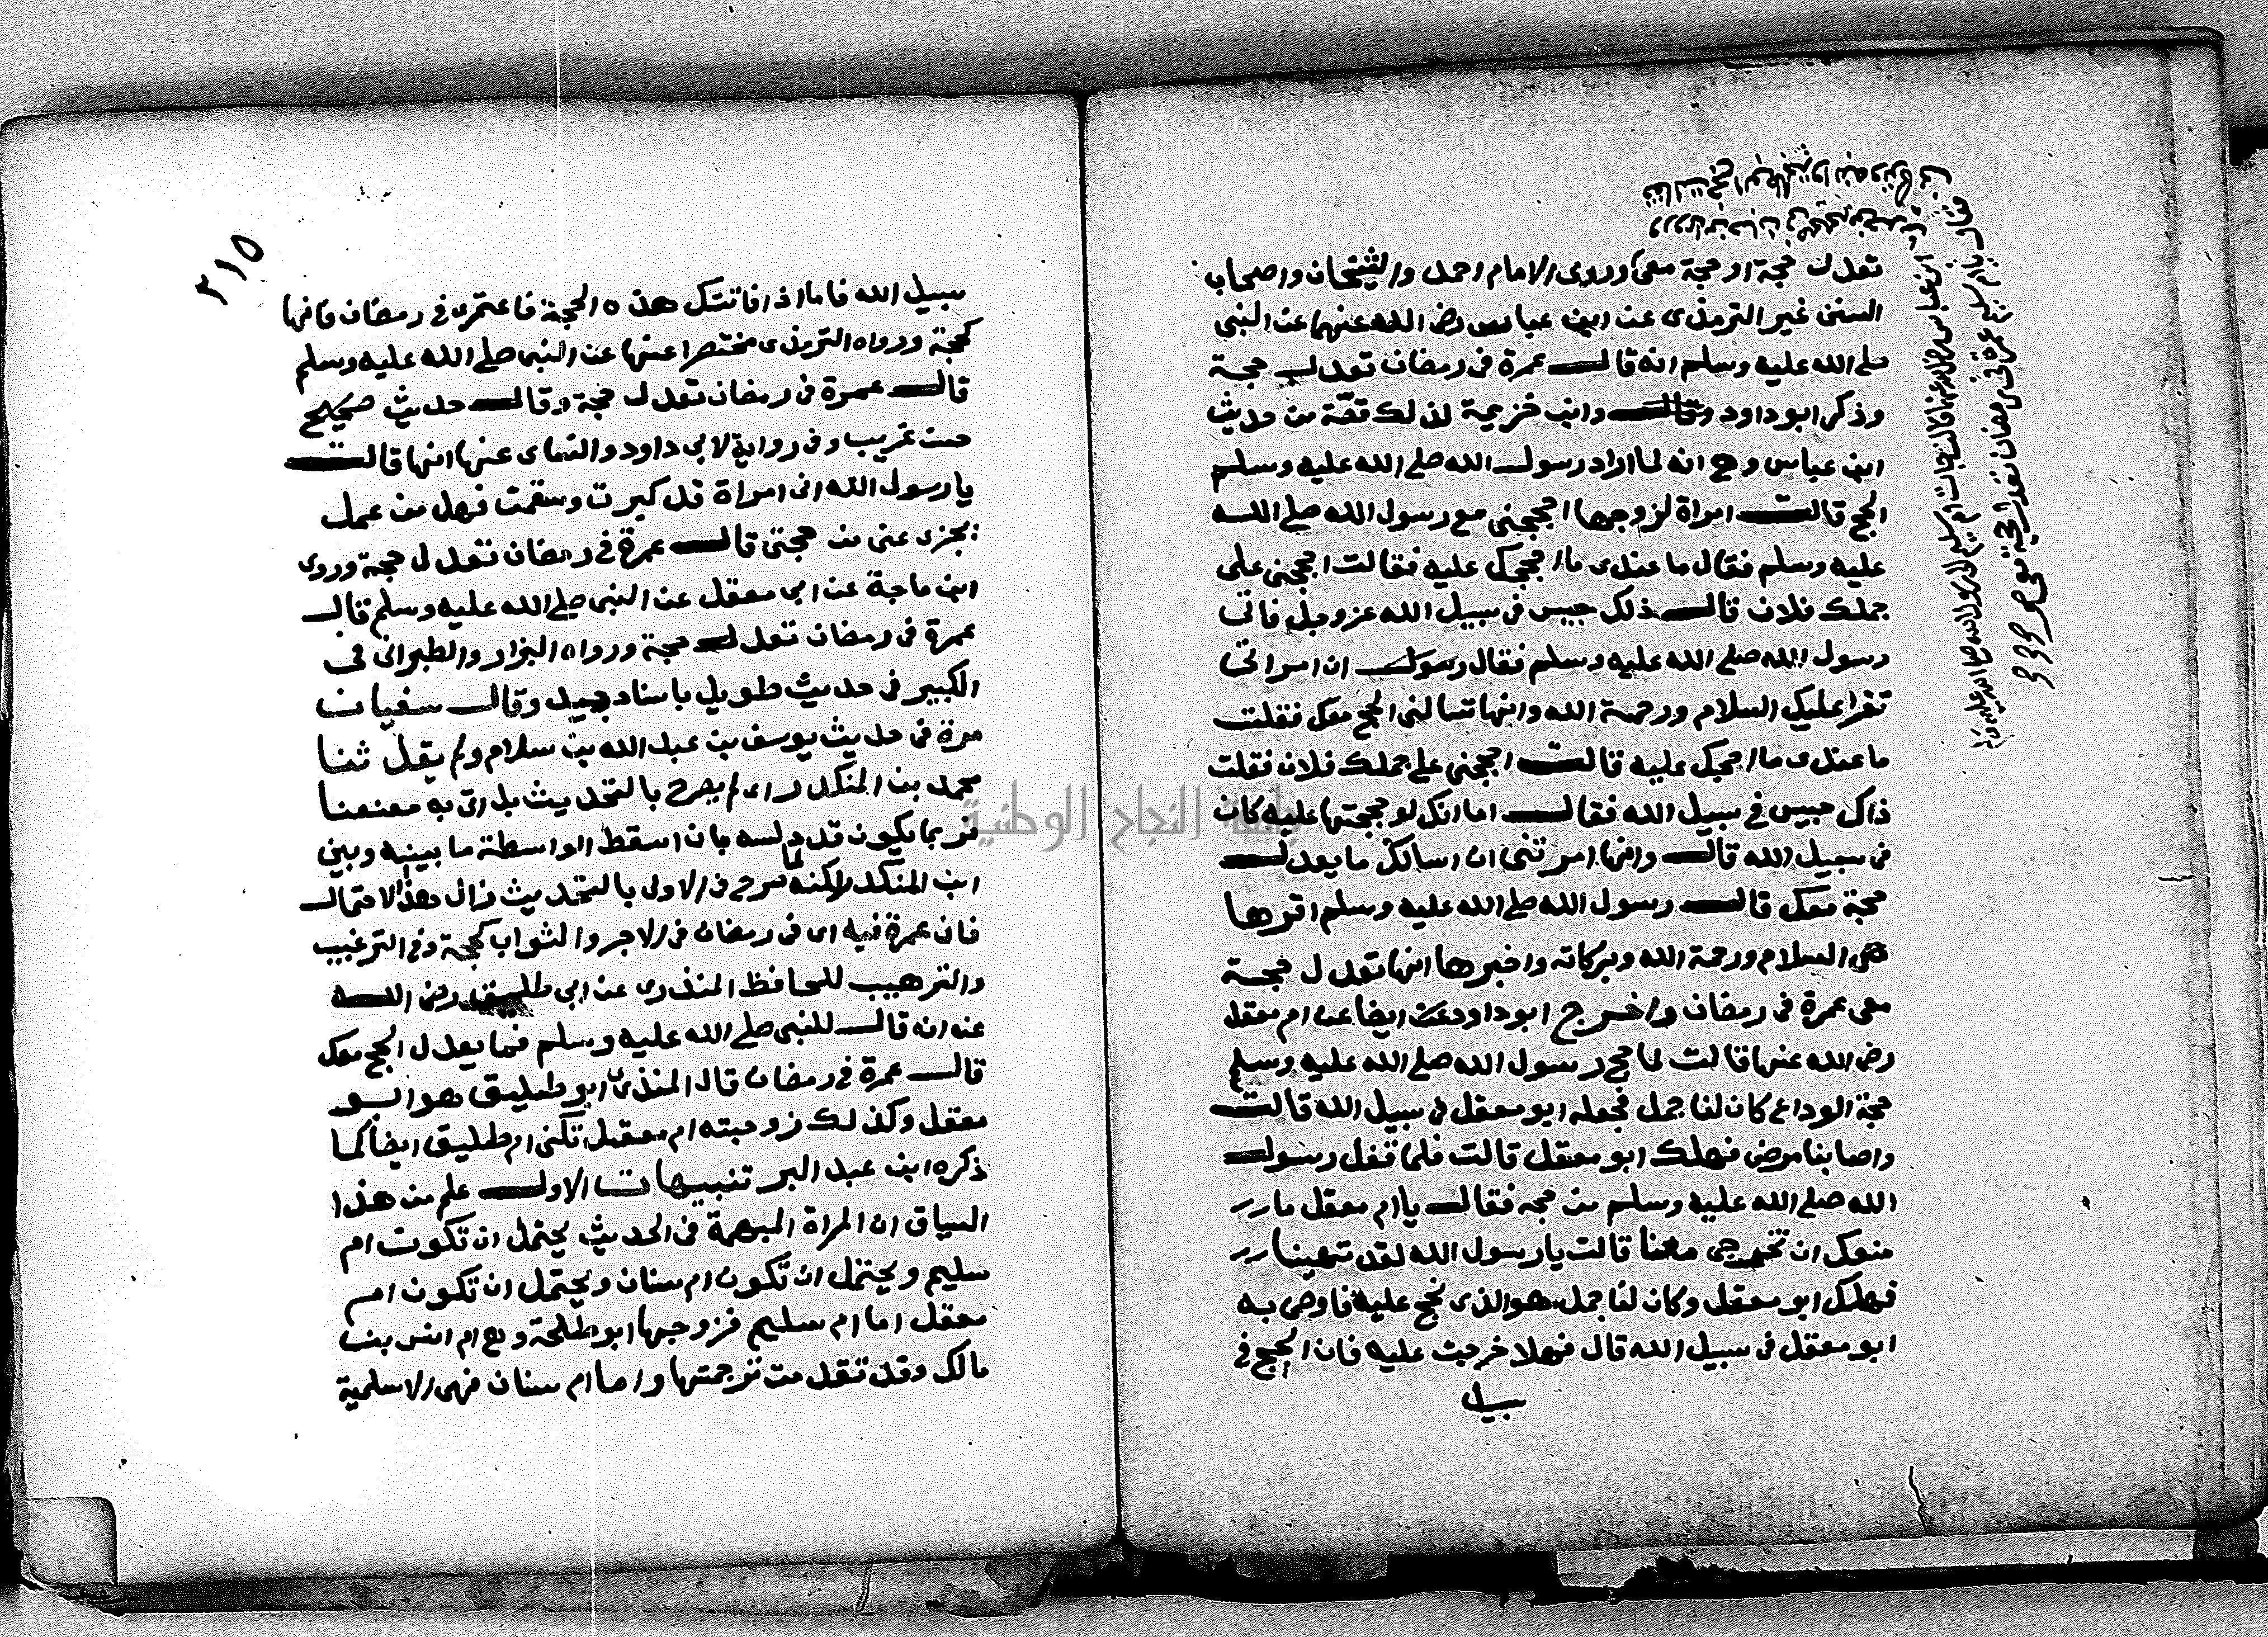 تعدل حجة او حجة معي وروى الامام احمد والشيخان واصحاب
السنن غير الترمذي عن ابن عباس رضى الله عنهما عن النبي
صلى الله عليه وسلم انه قال عمرة في رمضان تعدل حجة
وذكر ابو داود وابن خزيمة لذلك قصة من حديث
ابن عباس وهي انه لما اراد رسول الله صلى الله عليه وسلم
الحج قالت امراة لزوجها احججني مع رسول الله صلى الله
عليه وسلم فقال ما عندى ما احججك عليه فقالت احججني على
جملك فلان قال ذلك حبيس في سبيل الله عز وجل فاتى
رسول الله صلى الله عليه وسلم فقال رسول ان امراتى
تقرا عليك السلام ورحمة الله وانها تسالنى الحج معك فقلت
ما عندى ما احجك عليه قالت احججني على جملك فلان فقلت
ذاك حبيس في سبيل الله فقال اما انك لو حججتها عليه كان
في سبيل الله قال وانها امرتنى ان اسالك ما يعدل
حجة معك قال رسول الله صلى الله عليه وسلم اقرها
منى السلام ورحمة الله وبركاته واخبرها انها تعدل حجة
معى عمرة في رمضان واخرج ابو داود ايضا عن ام معقل
رضى الله عنها قالت لما حج رسول الله صلى الله عليه وسلم
حجة الوداع كان لنا جمل فجعله ابو معقل في سبيل الله قالت
واصابنا مرض فهلك ابو معقل قالت فلما قفل رسول
الله صلى الله عليه وسلم من حجه فقال يا ام معقل ما
منعك ان تخرجى معنا قالت يا رسول الله لقد تهينا
فهلك ابو معقل وكان لنا جمل هو الذى نحج عليه فاوصى به
ابو معقل في سبيل الله قال فهلا خرجت عليه فان الحج في
سبيل
ابن عباس رضى الله عنهما قال جات ام سليم الى رسول الله صلى الله عليه وسلم
فقال يا ام سليم عمرة في رمضان تعدل حجة معي
٢١٥
سبيل الله فاما اذا فاتتك هذه الحجة فاعتمرى في رمضان فانها
كحجة ورواه الترمذى مختصرا عنها عن النبى صلى الله عليه وسلم
قال عمرة في رمضان تعدل حجة وقال حديث صحيح
حسن غريب وفي رواية لابي داود والنساى عنها انها قالت
يا رسول الله انى امراة قد كبرت وسقمت فهل من عمل
يجزى عنى من حجتى قال عمرة في رمضان تعدل حجة وروى
ابن ماجة عن ابى معقل عن النبى صلى الله عليه وسلم قال
عمرة في رمضان تعدل حجة ورواه البزار والطبرانى في
الكبير في حديث طويل باسناد جيد وقال سفيان
مرة في حديث يوسف بن عبد الله بن سلام ولم يقل ثنا
محمد بن المنكدر اى لم يصرح بالتحديث بل اتى به معنعنا
فربما يكون قد دلسه بان اسقط الواسطة ما بينه وبين
ابن المنكدر لكنه لما صرح في الاولى بالتحديث زال هذا الاحتمال
فان عمرة فيه اى في رمضان في الاجر والثواب كحجة وفي الترغيب
والترهيب للحافظ المنذرى عن ابى طليق رضى الله
عنه انه قال للنبى صلى الله عليه وسلم فما يعدل الحج معك
قال عمرة في رمضان قال المنذرى ابو طليق هو ابو
معقل وكذلك زوجته ام معقل تكنى ام طليق ايضا كما
ذكره ابن عبد البر تنبيهات الاول علم من هذا
السياق ان المراة المبهمة في الحديث يحتمل ان تكون ام
سليم ويحتمل ان تكون ام سنان ويحتمل ان تكون ام
معقل اما ام سليم فزوجها ابو طلحة وهي ام انس بن
مالك وقد تقدمت ترجمتها واما ام سنان فهى الاسلمية
جامعة النجاح الوطنية